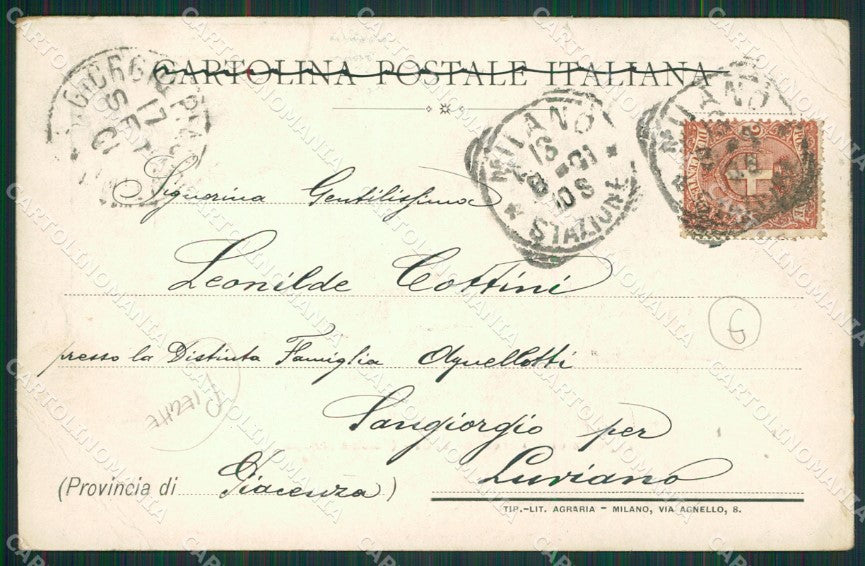 CARTOLINA POSTALE ITALIANA
MILANO
STAZIONE
MILANO
Signorina Gentilissima
Leonilde Cottini
presso la Distinta Famiglia Agnellotti
Sangiorgio per
Luviano
(Provincia di Piacenza)
TIP.-LIT. AGRARIA - MILANO, VIA AGNELLO, 8.
CARTOLINOMANIA